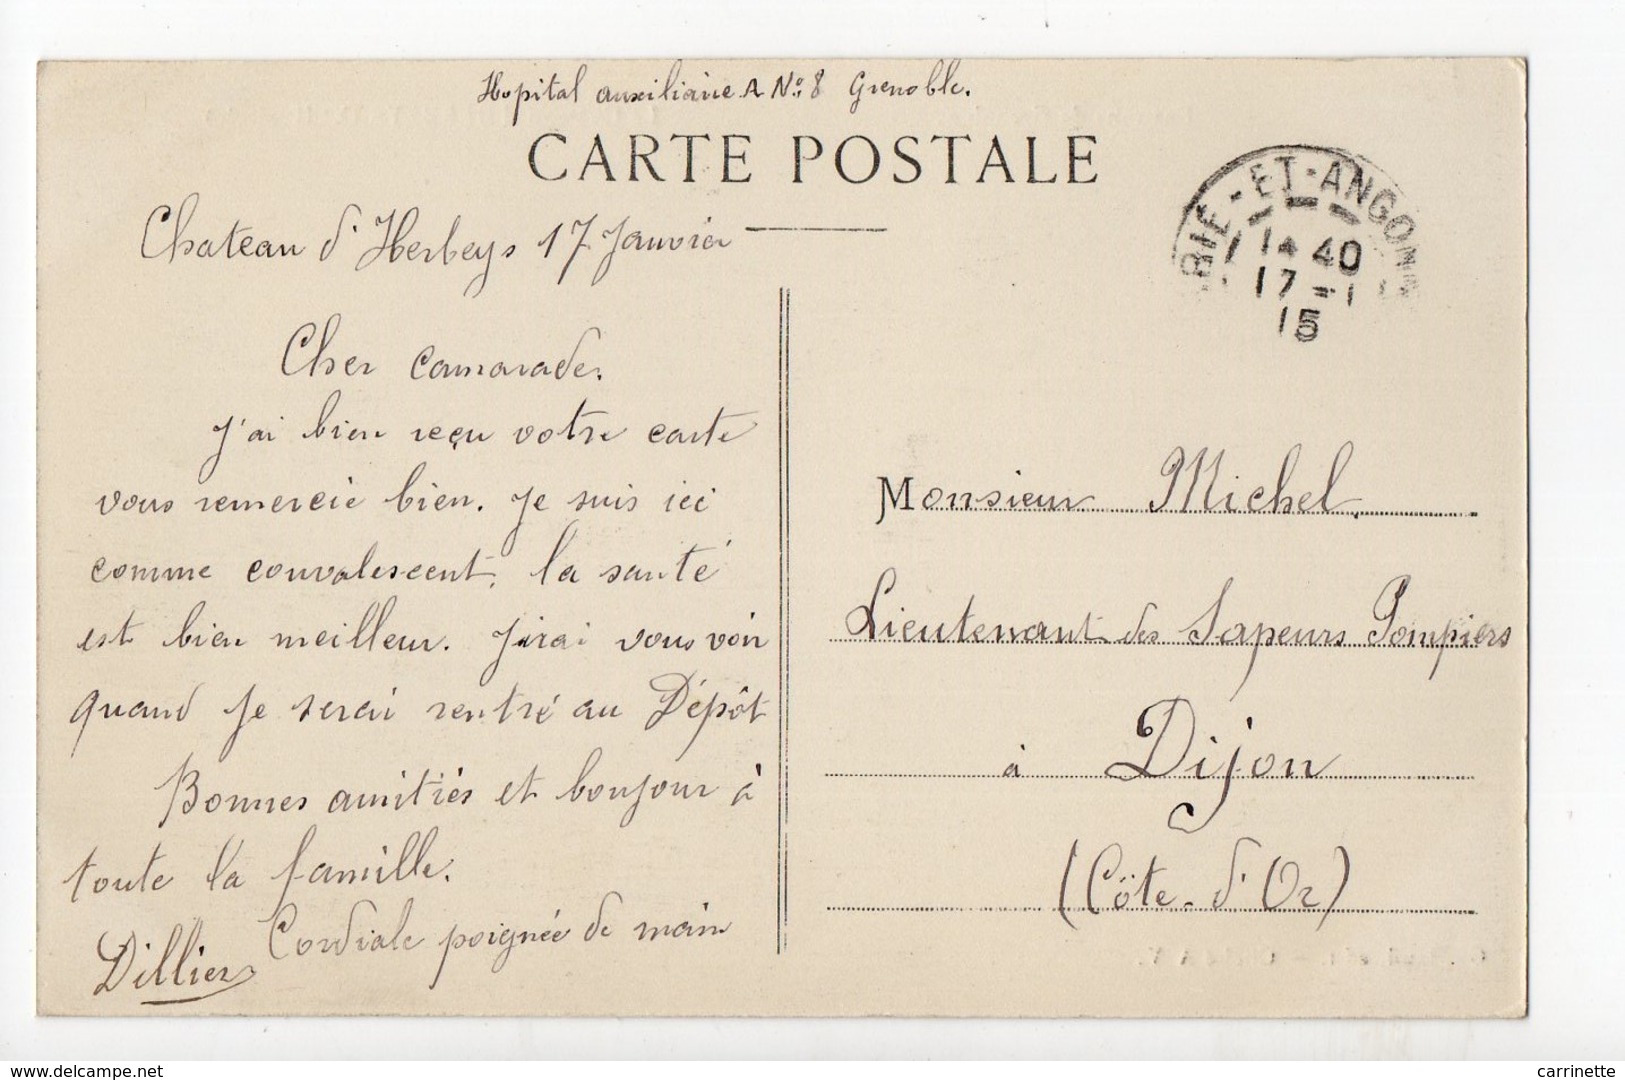 Hopital auxiliaire A No: 8 Grenoble.
CARTE POSTALE
Chateau d'Herbeys 17 Janvier
Cher Camarade.
J'ai bien reçu votre carte
vous remercie bien. Je suis ici
comme convalescent. la santé
est bien meilleur. J'irai vous voir
quand Je serai rentré au Dépôt
Bonnes amitiés et boujour à
toute la famille.
Cordiale poignée de main
Dillier
BRIE-ET-ANGONN
14 40
17 - 1
15
Monsieur Michel.
Lieutenant des Sapeurs Pompiers
à Dijon
(Côte-d'Or)
delcampe.net
carrinette